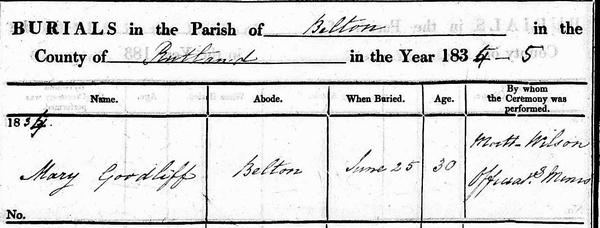 BURIALS in the Parish of Belton in the
County of Rutland in the Year 1834 - 5
Name. Abode. When Buried. Age. By whom the Ceremony was performed.
1834.
Mary Goodliff Belton June 25 30 Wilson
No.